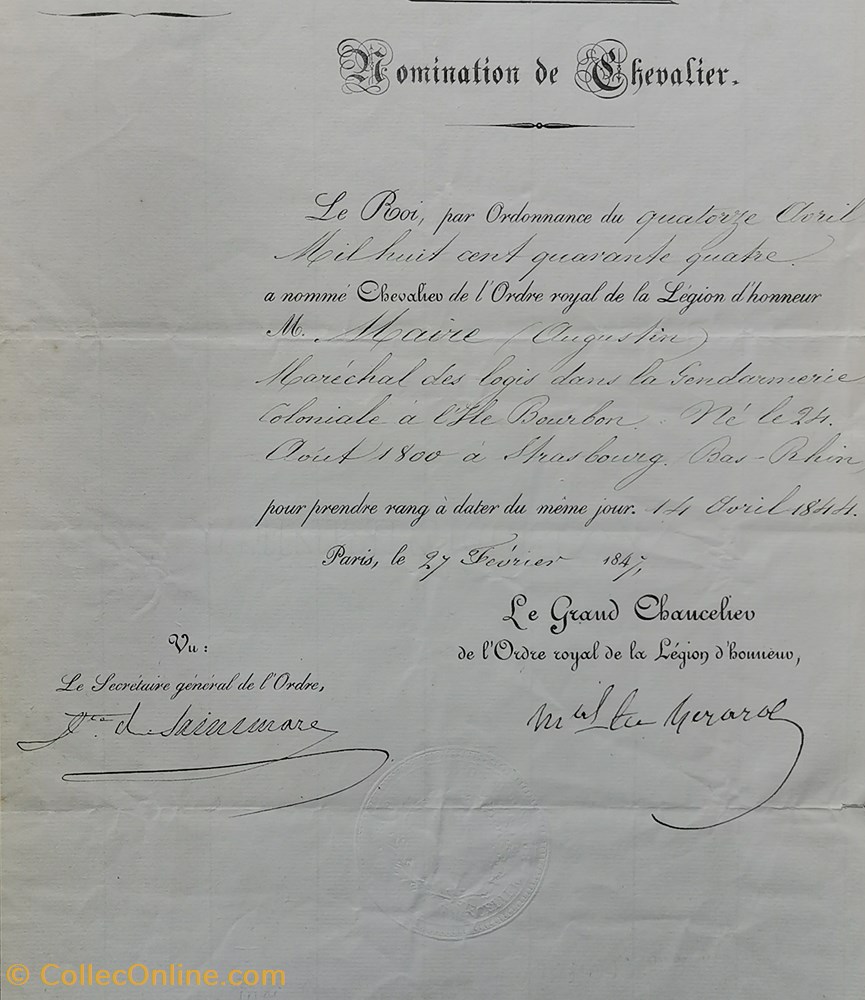 Nomination de Chevalier.
Le Roi, par Ordonnance du quatorze Avril
Mil huit cent quarante quatre.
a nommé Chevalier de l'Ordre royal de la Légion d'honneur
M. Maire (Augustin)
Maréchal des logis dans la Gendarmerie
Coloniale à l'Ile Bourbon. Né le 24.
Août 1800 à Strasbourg. Bas-Rhin
pour prendre rang à dater du même jour. 14 Avril 1844.
Paris, le 27 Février 1847,
Le Grand Chancelier
de l'Ordre royal de la Légion d'honneur,
Vu :
Le Secrétaire général de l'Ordre,
Vte de Saintmars
Mal Cte Gérard
© CollecOnline.com